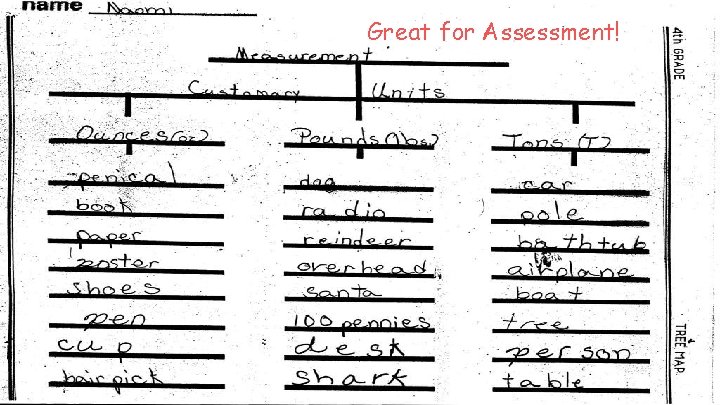 name Naomi
Great for Assessment!
Measurement
Customary Units
Ounces (oz)
penical
book
paper
poster
shoes
pen
cup
hairpick
Pounds (lbs.)
dog
radio
reindeer
overhead
santa
100 pennies
desk
shark
Tons (T)
car
pole
bathtub
airplane
boat
tree
person
table
4th GRADE
TREE MAP